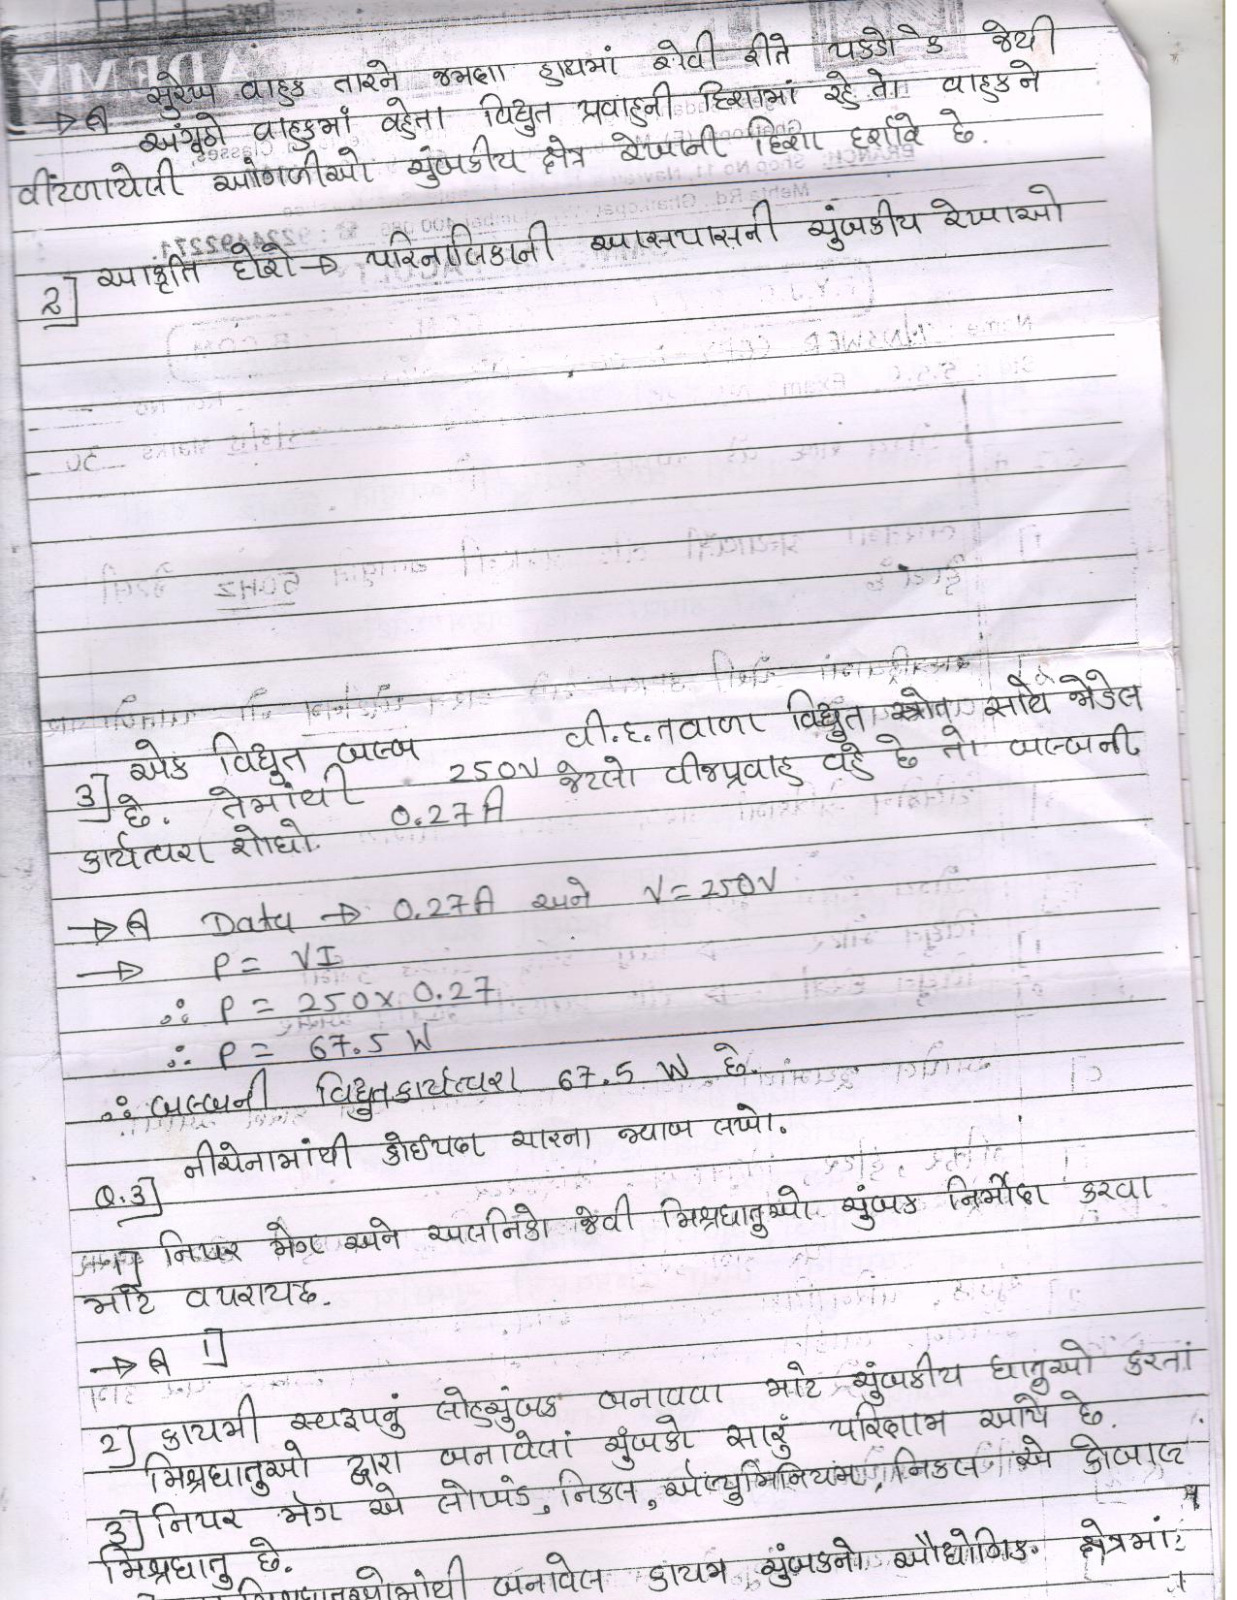 સુરેખ વાહક તારને જમણા હાથમાં એવી રીતે પકડો કે જેથી
→ A અંગૂઠો વાહકમાં વહેતા વિધુત પ્રવાહની દિશામાં રહે તો વાહકને
વીંટળાયેલી આંગળીઓ ચુંબકીય ક્ષેત્ર રેખાની દિશા દર્શાવે છે.
2] આકૃતિ દોરો → પરિનાલિકાની આસપાસની ચુંબકીય રેખાઓ
3] એક વિધુત બલ્બ 250V વી.દ.તવાળા વિધુત સ્ત્રોત સાથે જોડેલ
છે. તેમાંથી 0.27A જેટલો વીજપ્રવાહ વહે છે તો બલ્બની
કાર્યત્વરા શોધો.
→ A Data → 0.27A અને V = 250V
→ P = VI
∴ P = 250 x 0.27
∴ P = 67.5 W
∴ બલ્બની વિધુતકાર્યત્વરા 67.5 W છે.
Q.3] નીચેનામાંથી કોઈપણ ચારના જવાબ લખો.
1] નિપર મેગ અને અલનિકો જેવી મિશ્રધાતુઓ ચુંબક નિર્માણ કરવા
માટે વપરાયછે.
→ A 1]
2] કાયમી સ્વરૂપનું લોહચુંબક બનાવવા માટે ચુંબકીય ધાતુઓ કરતાં
મિશ્રધાતુઓ દ્વારા બનાવેલાં ચુંબકો સારું પરિણામ આપે છે.
3] નિપર મેગ એ લોખંડ, નિકલ, એલ્યુમિનિયમ, નિકલ એ કોબાલ્ટ
મિશ્રધાતુ છે.
બનાવેલ કાયમ ચુંબકનો ઔધોગિક ક્ષેત્રમાં